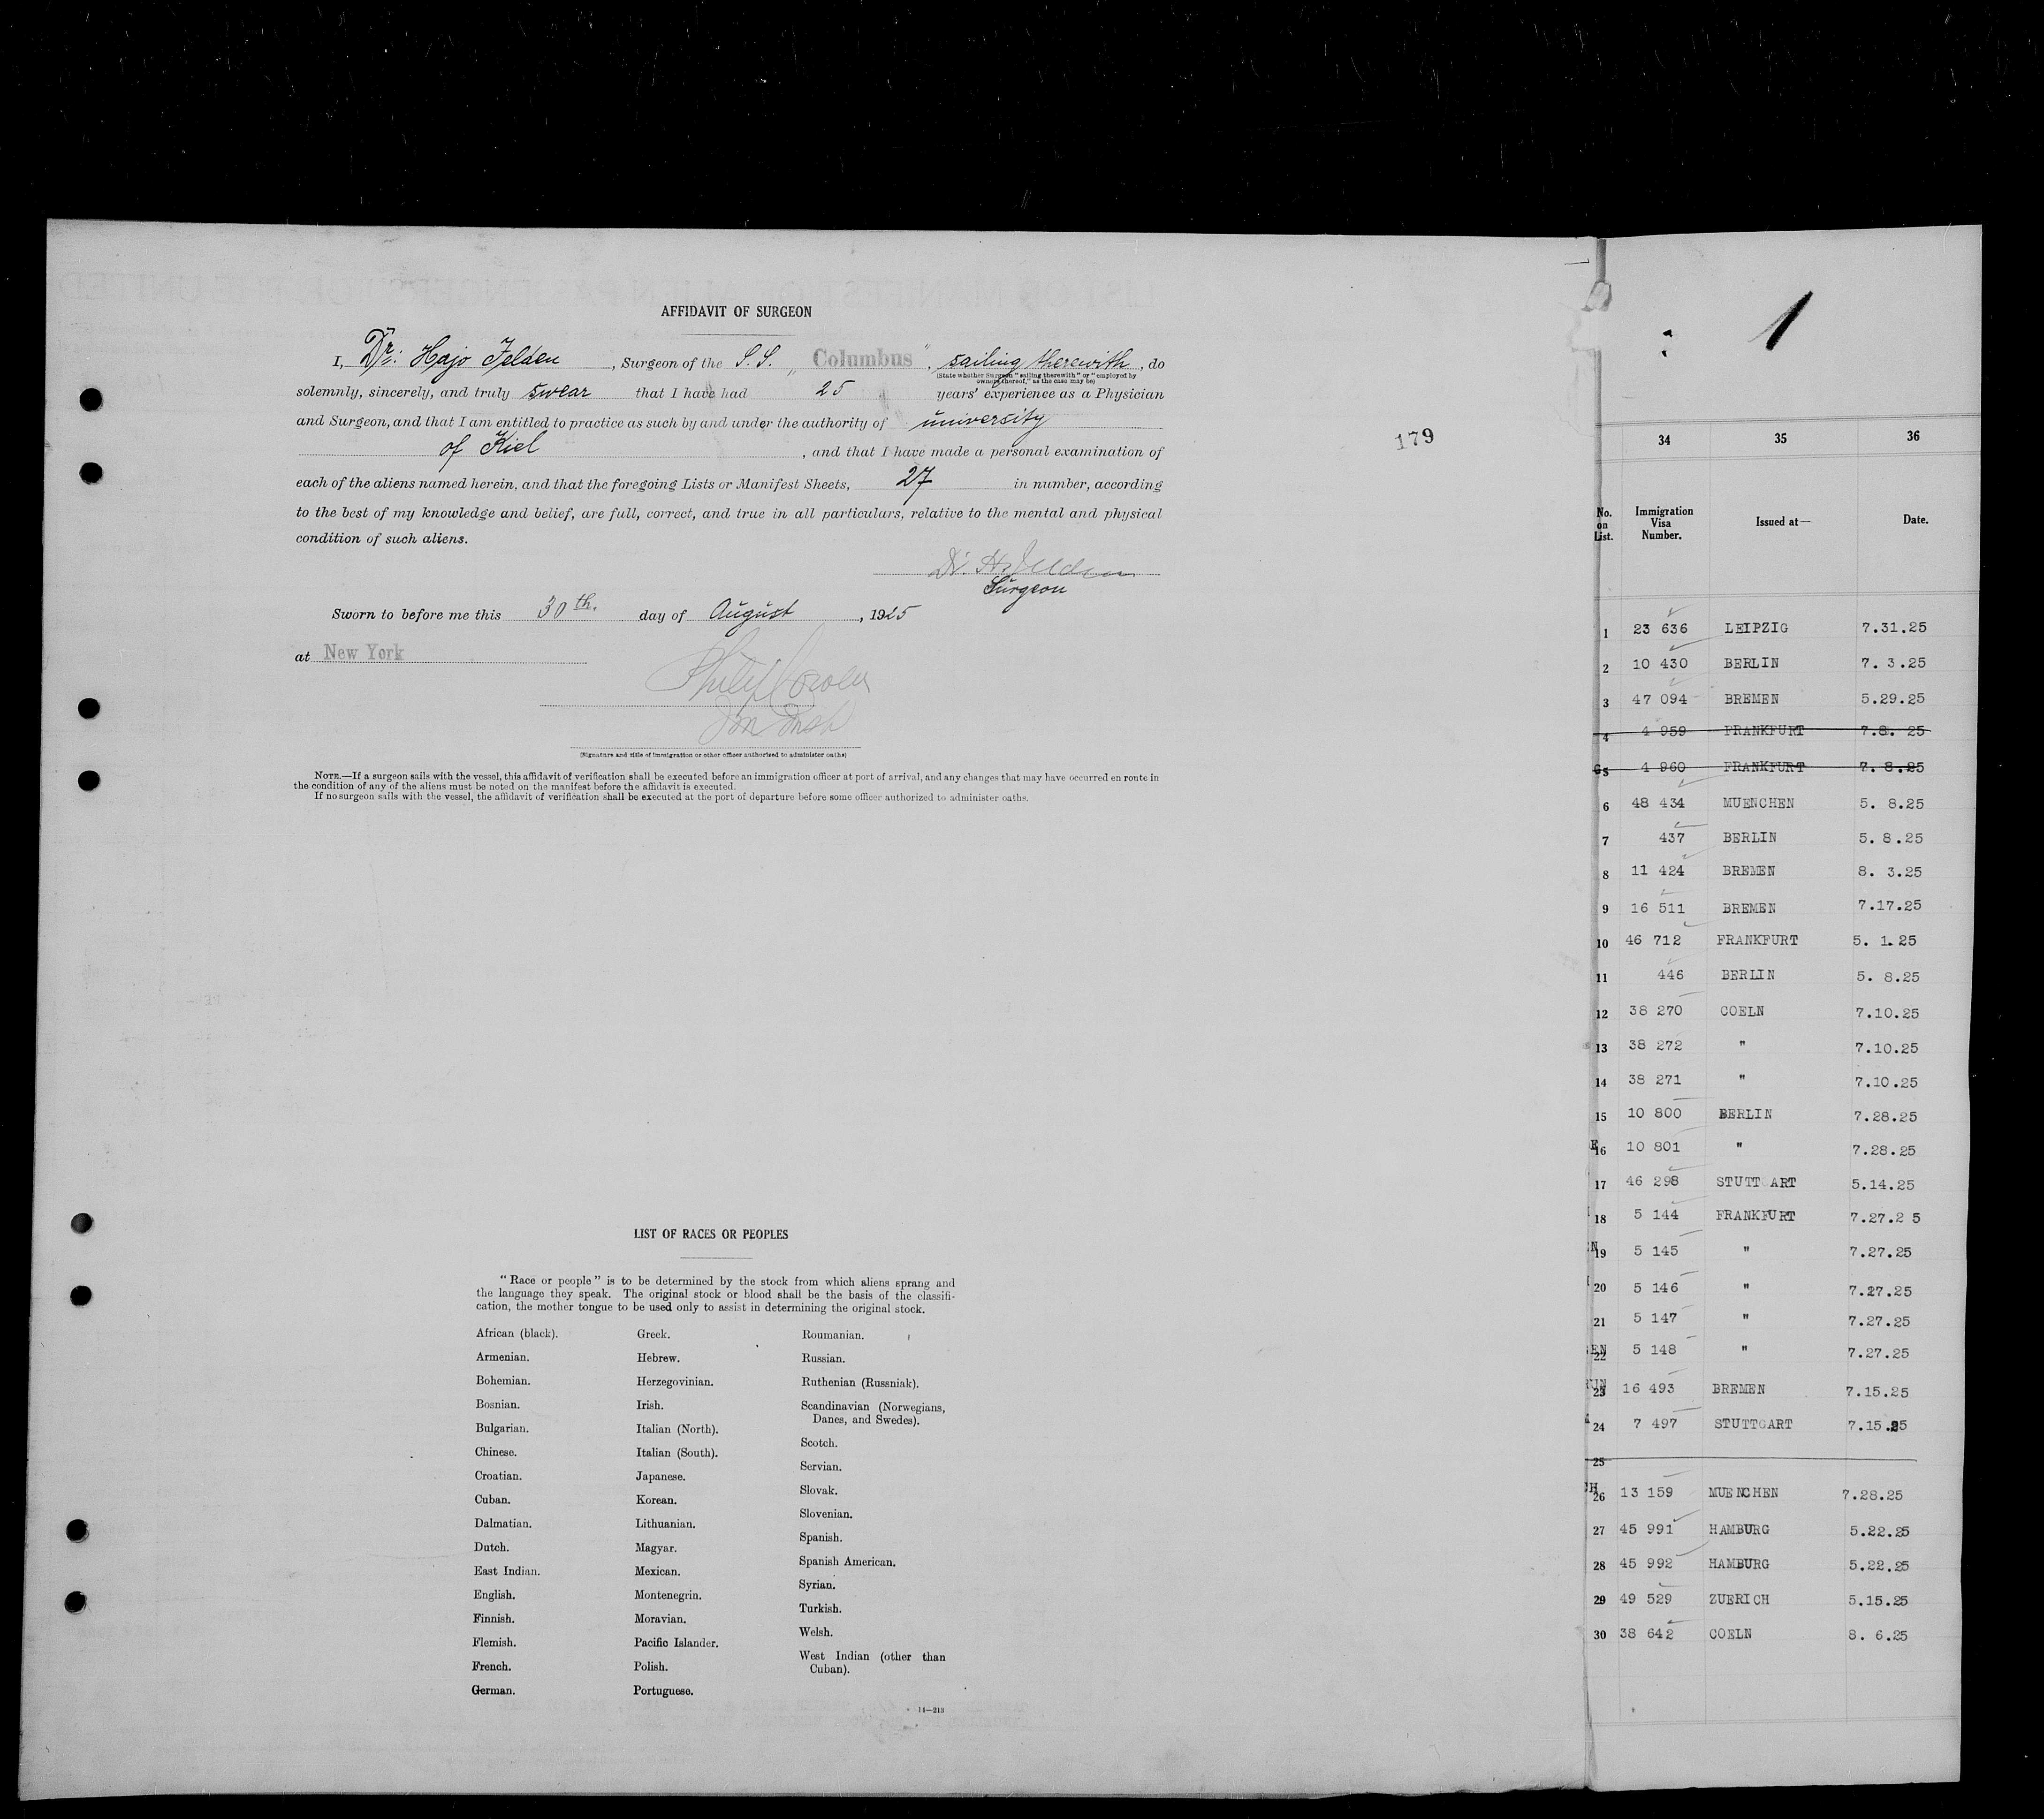 AFFIDAVIT OF SURGEON
I, Dr: Hajo Felden , Surgeon of the S.S. „ Columbus " , sailing therewith , do
(State whether Surgeon "sailing therewith" or "employed by
owners thereof," as the case may be)
solemnly, sincerely, and truly swear that I have had 25 years' experience as a Physician
and Surgeon, and that I am entitled to practice as such by and under the authority of university
of Kiel , and that I have made a personal examination of
each of the aliens named herein, and that the foregoing Lists or Manifest Sheets, 27 in number, according
to the best of my knowledge and belief, are full, correct, and true in all particulars, relative to the mental and physical
condition of such aliens.
Dr. H. Felden
Surgeon
Sworn to before me this 30th. day of August , 1925
at New York
(Signature and title of immigration or other officer authorized to administer oaths)
NOTE.—If a surgeon sails with the vessel, this affidavit of verification shall be executed before an immigration officer at port of arrival, and any changes that may have occurred en route in
the condition of any of the aliens must be noted on the manifest before the affidavit is executed.
If no surgeon sails with the vessel, the affidavit of verification shall be executed at the port of departure before some officer authorized to administer oaths.
179
LIST OF RACES OR PEOPLES
"Race or people" is to be determined by the stock from which aliens sprang and
the language they speak. The original stock or blood shall be the basis of the classifi-
cation, the mother tongue to be used only to assist in determining the original stock.
African (black).
Armenian.
Bohemian.
Bosnian.
Bulgarian.
Chinese.
Croatian.
Cuban.
Dalmatian.
Dutch.
East Indian.
English.
Finnish.
Flemish.
French.
German.
Greek.
Hebrew.
Herzegovinian.
Irish.
Italian (North).
Italian (South).
Japanese.
Korean.
Lithuanian.
Magyar.
Mexican.
Montenegrin.
Moravian.
Pacific Islander.
Polish.
Portuguese.
Roumanian.
Russian.
Ruthenian (Russniak).
Scandinavian (Norwegians,
Danes, and Swedes).
Scotch.
Servian.
Slovak.
Slovenian.
Spanish.
Spanish American.
Syrian.
Turkish.
Welsh.
West Indian (other than
Cuban).
14—213
1
34 35 36
No. on List. Immigration Visa Number. Issued at— Date.
1 23 636 LEIPZIG 7.31.25
2 10 430 BERLIN 7. 3.25
3 47 094 BREMEN 5.29.25
4 4 959 FRANKFURT 7.8. 25
5 4 960 FRANKFURT 7. 8.25
6 48 434 MUENCHEN 5. 8.25
7 437 BERLIN 5. 8.25
8 11 424 BREMEN 8. 3.25
9 16 511 BREMEN 7.17.25
10 46 712 FRANKFURT 5. 1.25
11 446 BERLIN 5. 8.25
12 38 270 COELN 7.10.25
13 38 272 " 7.10.25
14 38 271 " 7.10.25
15 10 800 BERLIN 7.28.25
16 10 801 " 7.28.25
17 46 298 STUTT ART 5.14.25
18 5 144 FRANKFURT 7.27.2 5
19 5 145 " 7.27.25
20 5 146 " 7.27.25
21 5 147 " 7.27.25
22 5 148 " 7.27.25
23 16 493 BREMEN 7.15.25
24 7 497 STUTTGART 7.15.25
25
26 13 159 MUENCHEN 7.28.25
27 45 991 HAMBURG 5.22.25
28 45 992 HAMBURG 5.22.25
29 49 529 ZUERICH 5.15.25
30 38 642 COELN 8. 6.25